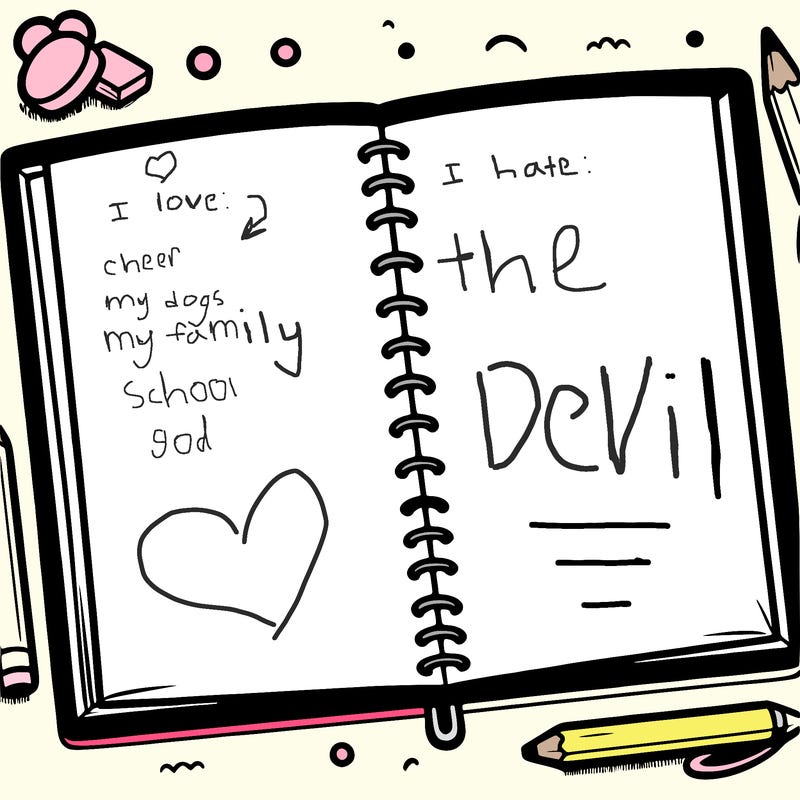 I love:
cheer
my dogs
my family
school
god
I hate:
the
Devil